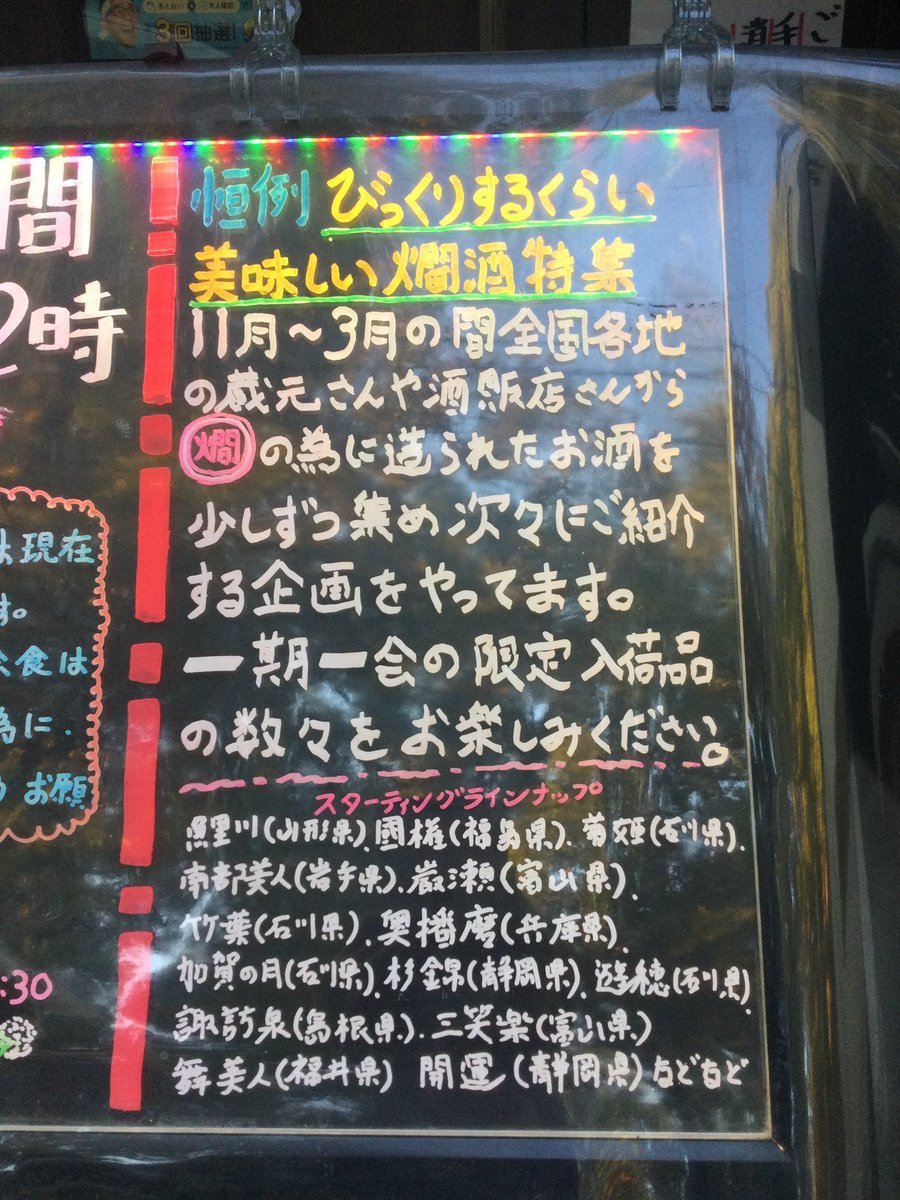 3回抽選!
間
2時
は現在
す。
飲食は
為に.
お願
:30
恒例 びっくりするくらい
美味しい燗酒特集
11月〜3月の間全国各地
の蔵元さんや酒販店さんから
燗の為に造られたお酒を
少しずつ集め次々にご紹介
する企画をやってます。
一期一会の限定入荷品
の数々をお楽しみください。
スターティングラインナップ
黒里川(山形県).國権(福島県).菊姫(石川県).
南部美人(岩手県).厳瀬(富山県).
竹葉(石川県).奥播磨(兵庫県).
加賀の月(石川県).杉錦(静岡県).遊穂(石川県).
諏訪泉(島根県).三笑楽(富山県)
舞美人(福井県) 開運(静岡県)などなど